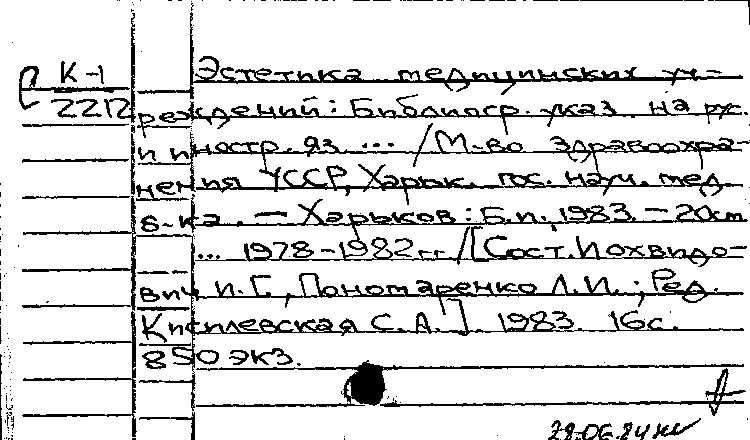 К-1 Эстетика медицинских уч-
2212 реждений: Библиогр. указ. на рус.
и иностр. яз. ... / М-во здравоохра-
нения УССР, Харьк. гос. науч. мед.
б-ка. — Харьков: Б.и., 1983. — 20см
... 1978-1982гг. / [Сост. Иохвидо-
вич И.Г., Пономаренко Л.И.; Ред.
Киселевская С.А.]. 1983. 16с.
850 экз.
28.06.84